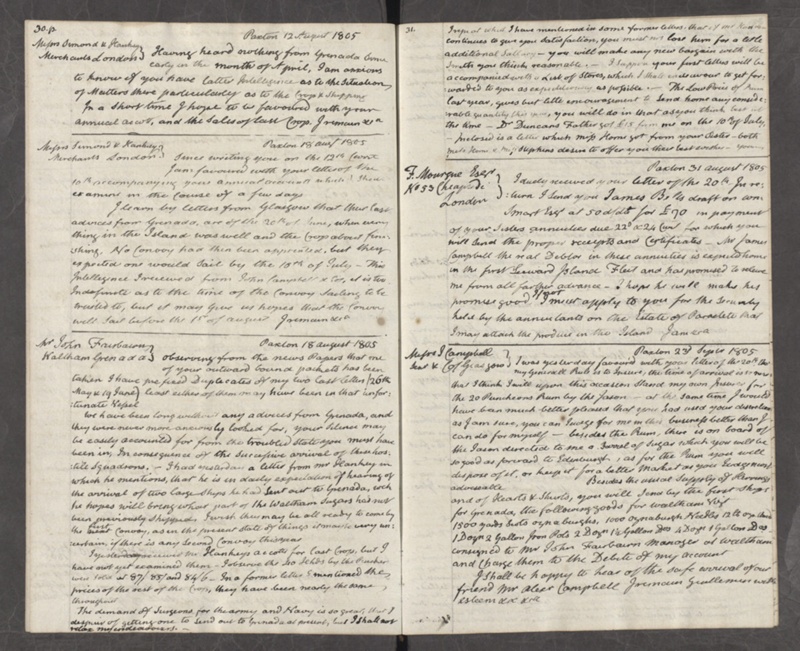 30.p.
Paxton 12 August 1805
Messrs Simond & Hankey
Merchants London
Having heard nothing from Grenada since
early in the month of April, I am anxious
to know if you have later Intelligence as to the situation
of Matters there particularly as to the Crop & Shipping
In a short time I hope to be favoured with your
annual acct. and the Sales of last Crop. I remain &a
Paxton 18 augt 1805
Messrs Simond & Hankey
Merchants London
Since writing you on the 12th Curt
I am favoured with your letter of the
10th accompanying your annual accounts which I shall
examine in the course of a few days
I learn by letters from Glasgow that their last
advices from Grenada, are of the 20th of June, when every
thing in the Island was well and the Crop about fini-
shing. No Convoy had then been appointed, but they
expected one would sail by the 10th of July. This
Intelligence I received from John Campbell & Co, it is too
Indefinite as to the time of the Convoy sailing to be
trusted to, but it may give us hopes that the Convoy
will sail before the 1st of august I remain &a
Paxton 18 august 1805
Mr John Fairbairn
Waltham Grenada
observing from the news Papers that one
of your outward bound packets has been
taken I have prefixed Duplicates of my two last letters (26th
May & 19 June) least either of them may have been in that unfor:
tunate Vessel
We have been long without any advices from Grenada, and
they were never more anxiously looked for, your silence may
be easily accounted for from the troubled State you must have
been in, In consequence of the successive arrival of these hos:
tile Squadrons. I had yesterday a letter from Mr Hankey in
which he mentions, that he is in daily expectation of hearing of
the arrival of two large Ships he had sent out to Grenada, with
he hopes will bring what part of the Waltham Sugars had not
been previously shipped. I wish they may be all ready to come by
the first Convoy, as in the present state of things it must be very un:
certain, if there is any Second Convoy this year
I yesterday received Mr Hankeys accots for last Crop, but I
have not yet examined them. I observe the
was sold at 87/ 85/ and 84/6. In a former letter I mentioned the
prices of the rest of the Crop, they have been nearly the same
throughout
The demand of Surgeons for the army and Navy is so great, that I
despair of getting one to send out to Grenada at present, but I shall not
relax my endeavours.
31.
which I have mentioned in some former letters, that if
continues to give you satisfaction, you must not lose him for a little
additional Sallary - you will make any new bargain with
you think reasonable. I suppose your first letters will be
accompanied with a List of Stores, which I shall endeavour to get for:
warded to you as expeditiously as possible. The low Price of Rum
last year, gives but little encouragement to send home any conside:
rable quantity this year, you will do in that as you think best
the time - Dr Duncans Father got £ from me on the 10th of July,
- Inclosed is a letter which Miss Home got from your Sister - both
Miss Home & Mrs Stephens desire to offer you their best wishes
Paxton 31 august 1805
F. Mourgue Esqr
No 53 Cheapside
London
I duly received your letter of the 20th In re:
turn I send you James Bells draft on
at 50 d/dt for £70 in payment
of your Sisters annuities due 22d & 24 Curt for which you
will send the proper receipts and Certificates. Mr James
Campbell the real Debtor in these annuities is expected home
in the first Leeward Island Fleet and has promised to relieve
me from all farther advance. I hope he will make his
promise good, if not I must apply to you for the Security
held by the annuitants on the Estate of Paraclete that
I may attach the produce in the Island I am &a
Paxton 28 Septr 1805
Messrs J Campbell
Senr & Co Glasgow
I was yesterday favoured with your letter of the 20th
my General Rule is to Insure, the time of arrival is so near
that I think I will upon this occasion stand my own Insurer for
the 20 Puncheons Rum by the Jason - at the same time I would
have been much better pleased that you had used your discretion
as I am sure, you can Judge for me in this business better than I
can do for myself - besides the Rum, there is on board of
the Jason directed to me a Barrel of Sugar which you will be
so good as forward to Edinburgh. as for the Rum you will
dispose of it, or keep it for a better Market as your Judgement
advisable
Besides the usual supply of Herrings
and of Hearts & Shivs, you will send by the first Ships
for Grenada, the following goods for Waltham Vizt
1500 yards best osnaburghs, 1000 osnaburgh Needles
1 Dozn 2 Gallon Iron Pots 2 Dozn 1½ Gallon Do 4 Dozn 1 Gallon Do
consigned to Mr John Fairbairn Manager at Waltham
and charge them to the Debit of my account
I shall be happy to hear of the safe arrival of our
friend Mr Alexr Campbell I remain Gentlemen with
esteem &a &a